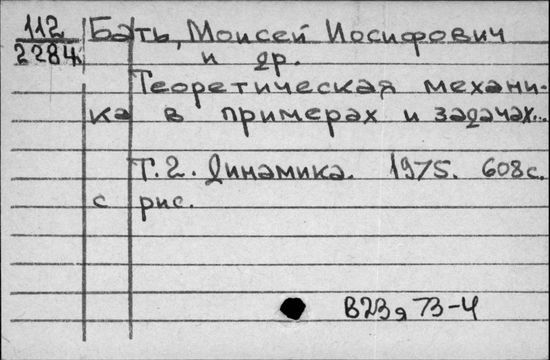 112 Бать, Моисей Иосифович
2284 и др.
Теоретическая механи-
ка в примерах и задачах...
Т.2. Динамика. 1975. 608с.
с рис.
В23я73-4